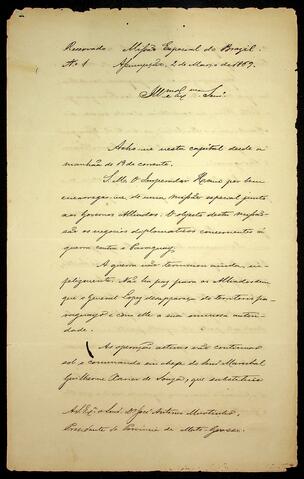 Reservado. Missão Especial do Brazil.
N. 1 Assumpção, 2 de Março de 1869.
Illmo e Exmo Snr.
Acho-me nesta capital desde a
manhã de
S. M. O Imperador Houve por bem
encarregar-me de uma missão especial junto
aos Governos Alliados. O objecto desta missão
são os negocios diplomaticos concernentes á
guerra contra o Paraguay.
A guerra não terminou ainda, in-
felizmente. Não ha paz para os Alliados sem
que o General Lopez desappareça do territorio pa-
raguayo e com elle a sua autori-
dade.
As operações activas vão continuar
sob o commando em chefe do Snr. Marechal
Guilherme Xavier de Souza, que substitue
A S. Exª o Snr. Dr. José Antonio Murtinho,
Presidente da Provincia de Mato-Grosso.